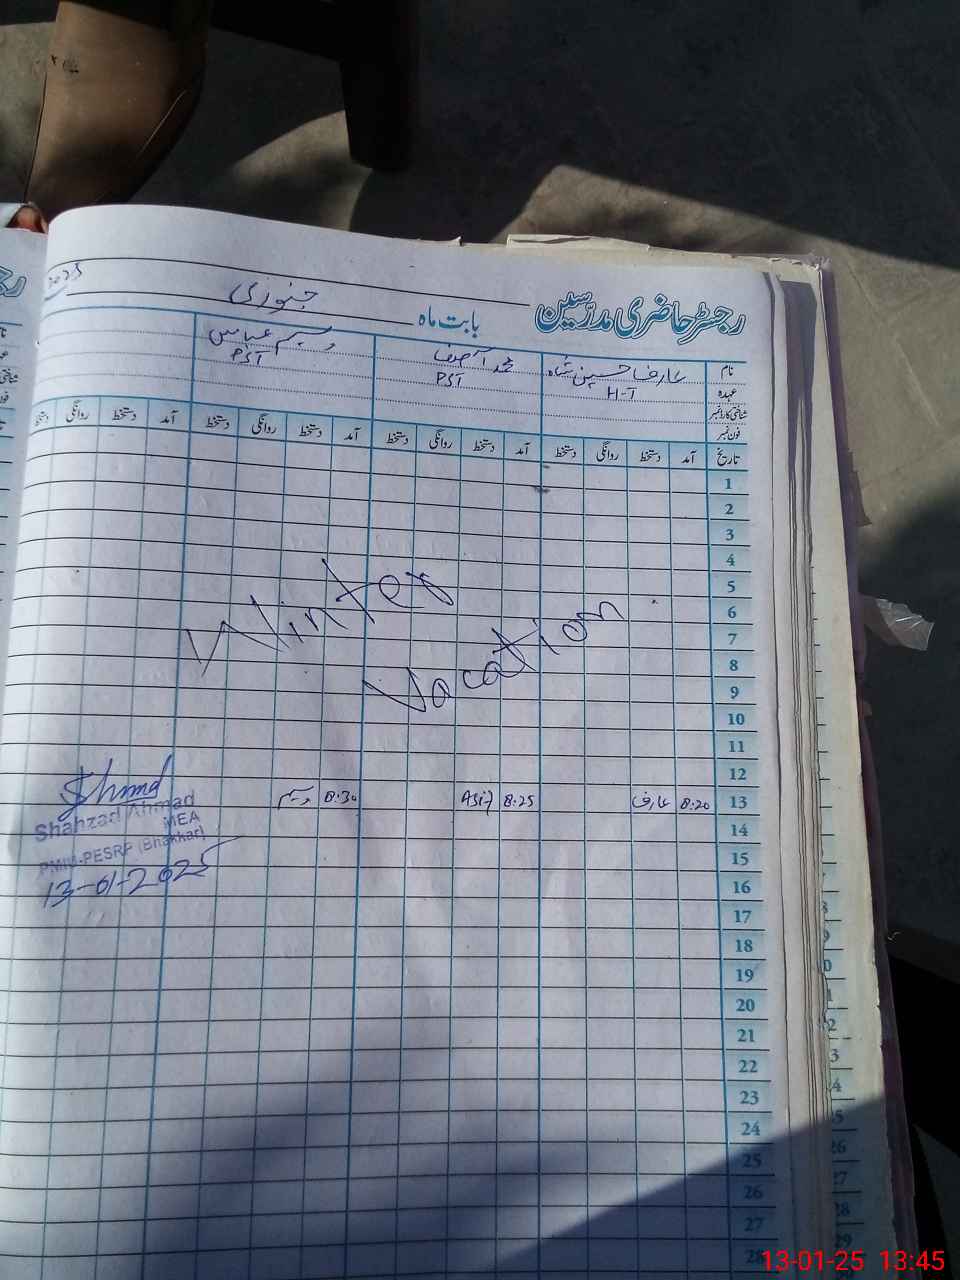 رجسٹر حاضری مدرسین بابت ماہ جنوری 2025
نام عارف حسین شاہ محمد آصف وسیم عباس
عہدہ H-T PST PST
شناختی کارڈ نمبر
فون نمبر
تاریخ آمد دستخط روانگی دستخط آمد دستخط روانگی دستخط آمد دستخط روانگی دستخط آمد دستخط روانگی دستخط
1
2
3
4
5
6
7
8
9
10
11
12
Winter
Vacation
13 8:20 عارف 8:25 Asif 8:30 وسیم
14
15
16
17
18
19
20
21
22
23
24
25
26
27
28
Shahzad Ahmad
MEA
PMIU-PESRP (Bhakkar)
13-01-2025
13-01-25 13:45